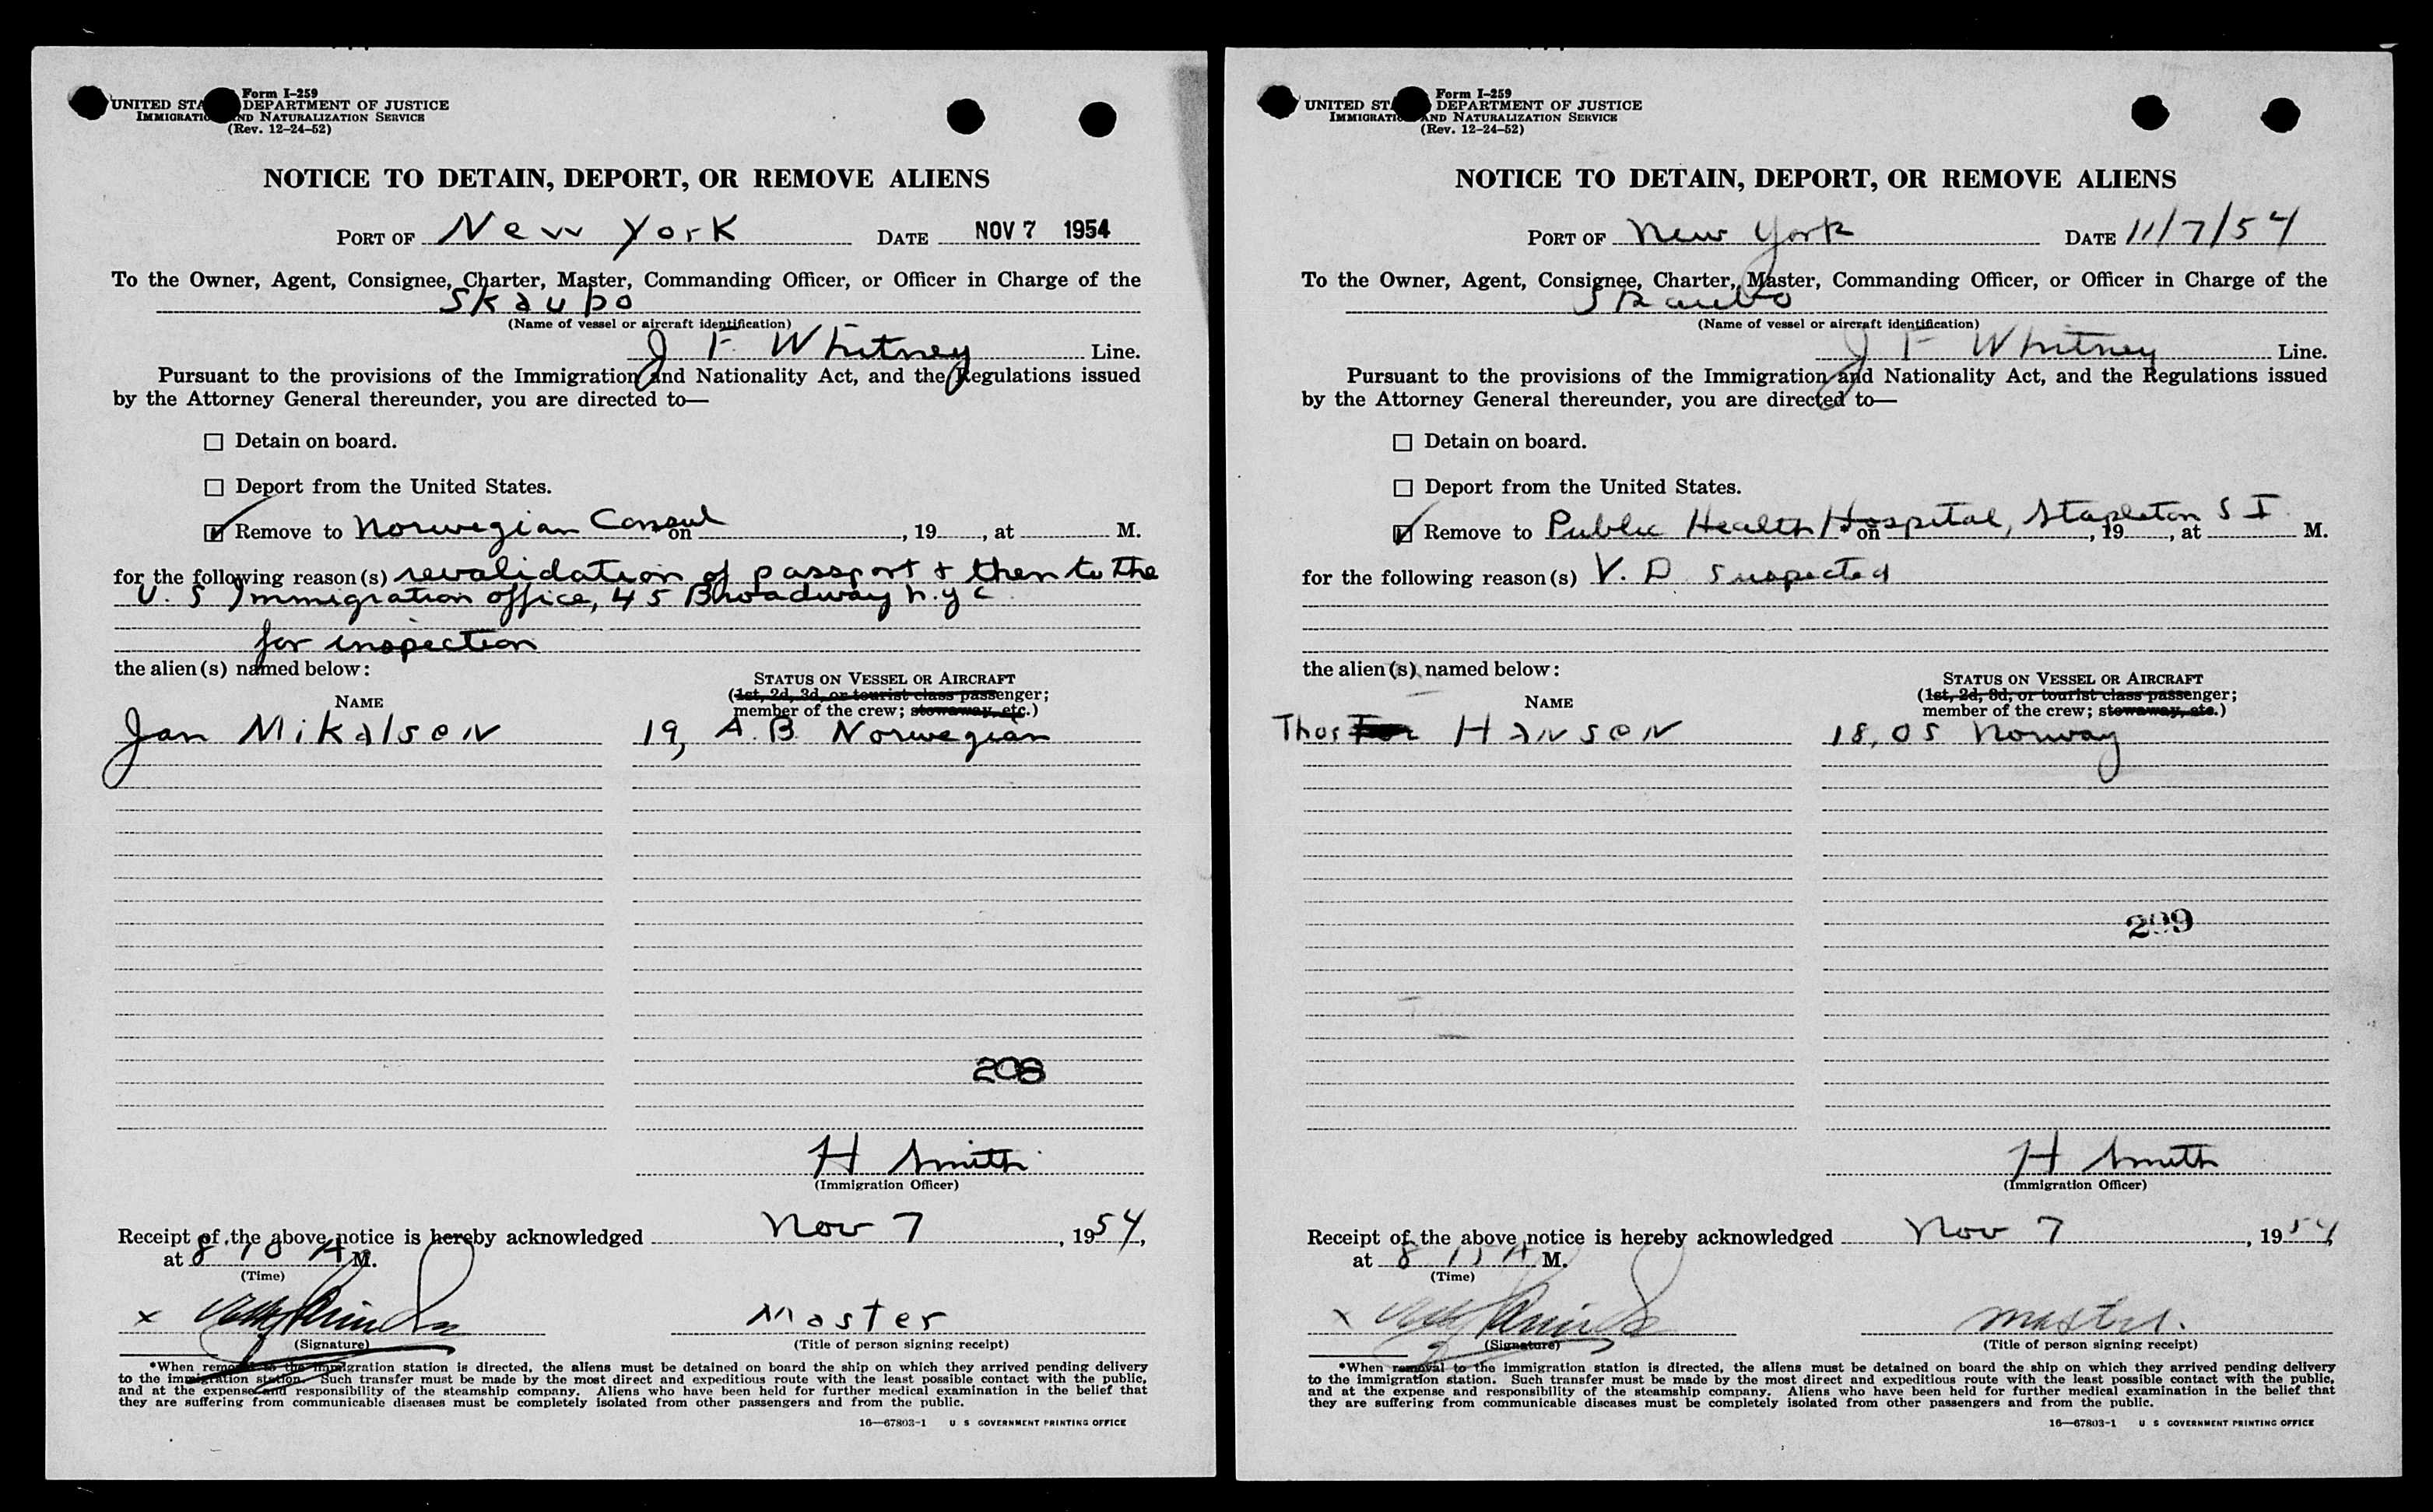 Form I-259
UNITED STA DEPARTMENT OF JUSTICE
IMMIGRATIO ND NATURALIZATION SERVICE
(Rev. 12-24-52)
NOTICE TO DETAIN, DEPORT, OR REMOVE ALIENS
PORT OF New York DATE NOV 7 1954
To the Owner, Agent, Consignee, Charter, Master, Commanding Officer, or Officer in Charge of the
Skaubo
(Name of vessel or aircraft identification)
J F. Whitney Line.
Pursuant to the provisions of the Immigration and Nationality Act, and the Regulations issued
by the Attorney General thereunder, you are directed to—
Detain on board.
Deport from the United States.
Remove to Norwegian Consul * on , 19 , at M.
for the following reason(s) revalidation of passport + then to the
U. S Immigration office, 45 Broadway N.Y C
for inspection
the alien(s) named below:
NAME
STATUS ON VESSEL OR AIRCRAFT
(1st, 2d, 3d, or tourist class passenger;
member of the crew; stowaway, etc.)
Jan Mikalsen 19, A.B. Norwegian
208
H Smith
(Immigration Officer)
Receipt of the above notice is hereby acknowledged Nov 7, 1954,
at 8 10 A M.
(Time)
x
Master
(Signature)
(Title of person signing receipt)
*When removal to the immigration station is directed, the aliens must be detained on board the ship on which they arrived pending delivery
to the immigration station. Such transfer must be made by the most direct and expeditious route with the least possible contact with the public,
and at the expense and responsibility of the steamship company. Aliens who have been held for further medical examination in the belief that
they are suffering from communicable diseases must be completely isolated from other passengers and from the public.
16—67803-1 U S GOVERNMENT PRINTING OFFICE
Form I-259
UNITED ST DEPARTMENT OF JUSTICE
IMMIGRATI AND NATURALIZATION SERVICE
(Rev. 12-24-52)
NOTICE TO DETAIN, DEPORT, OR REMOVE ALIENS
PORT OF New York DATE 11/7/54
To the Owner, Agent, Consignee, Charter, Master, Commanding Officer, or Officer in Charge of the
Skaubo
(Name of vessel or aircraft identification)
J F Whitney Line.
Pursuant to the provisions of the Immigration and Nationality Act, and the Regulations issued
by the Attorney General thereunder, you are directed to—
Detain on board.
Deport from the United States.
Remove to Public Health Hospital, Stapleton S I * on , 19 , at M.
for the following reason(s) V. D suspected
the alien(s) named below:
NAME
STATUS ON VESSEL OR AIRCRAFT
(1st, 2d, 3d, or tourist class passenger;
member of the crew; stowaway, etc.)
Thor Hansen 18, OS Norway
299
H Smith
(Immigration Officer)
Receipt of the above notice is hereby acknowledged Nov 7, 1954,
at 8 15 A M.
(Time)
x
master.
(Signature)
(Title of person signing receipt)
*When removal to the immigration station is directed, the aliens must be detained on board the ship on which they arrived pending delivery
to the immigration station. Such transfer must be made by the most direct and expeditious route with the least possible contact with the public,
and at the expense and responsibility of the steamship company. Aliens who have been held for further medical examination in the belief that
they are suffering from communicable diseases must be completely isolated from other passengers and from the public.
16—67803-1 U S GOVERNMENT PRINTING OFFICE